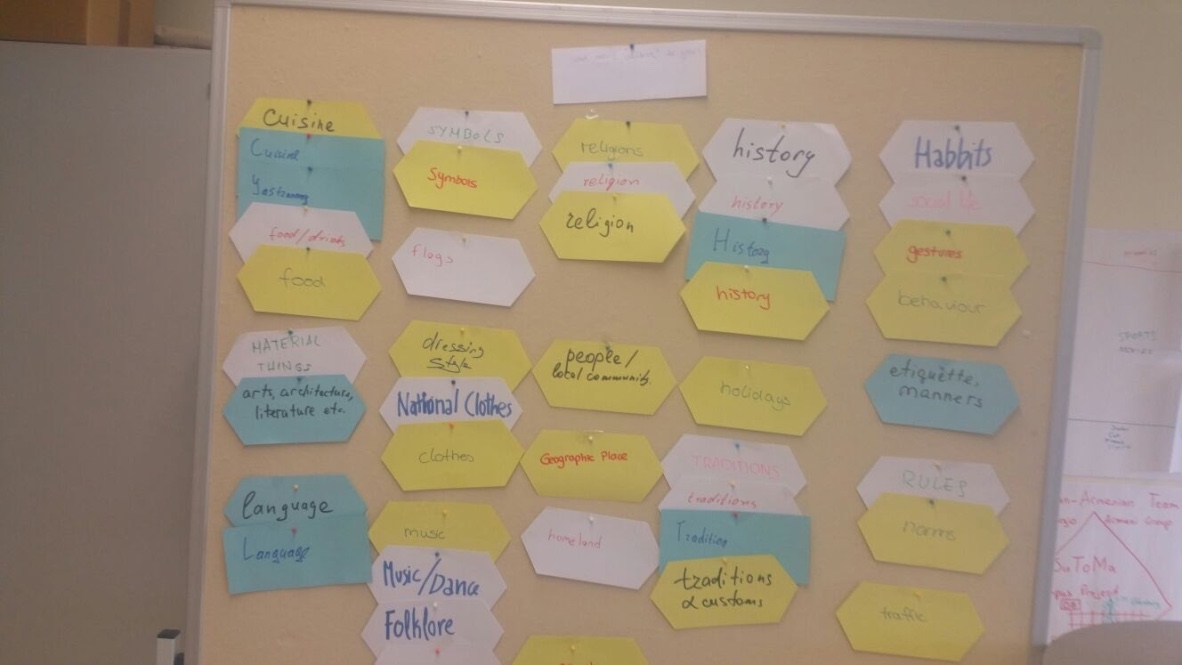 Cuisine
Cuisine
Yastronomy
food/drinks
food
MATERIAL
THINGS
arts, architecture,
literature etc.
language
Language
SYMBOLS
Symbols
flags
dressing
style
National Clothes
clothes
music
Music/Dance
Folklore
religions
religion
religion
people/
local community
Geographic Place
homeland
history
history
History
history
holidays
TRADITIONS
traditions
Tradition
traditions
& customs
Habbits
social life
gestures
behaviour
etiquette,
manners
RULES
norms
traffic
SPORTS
-Armenian Team
SuToMa
Project